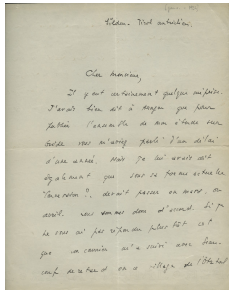 Sölden. Tirol autrichien.
Cher monsieur,
Il y eut certainement quelque méprise.
J'avais bien dit à que pour
publier l'ensemble de mon étude sur
vous m'aviez parlé d'un délai
d'une année. Mais je lui avais dit
également que sous sa forme actuelle
devait passer en mars, ou
avril. nous sommes donc d'accord. Si je
ne vous ai pas répondu plus tôt c'est
que un courrier m'a suivi avec beau-
coup de retard en ce village de